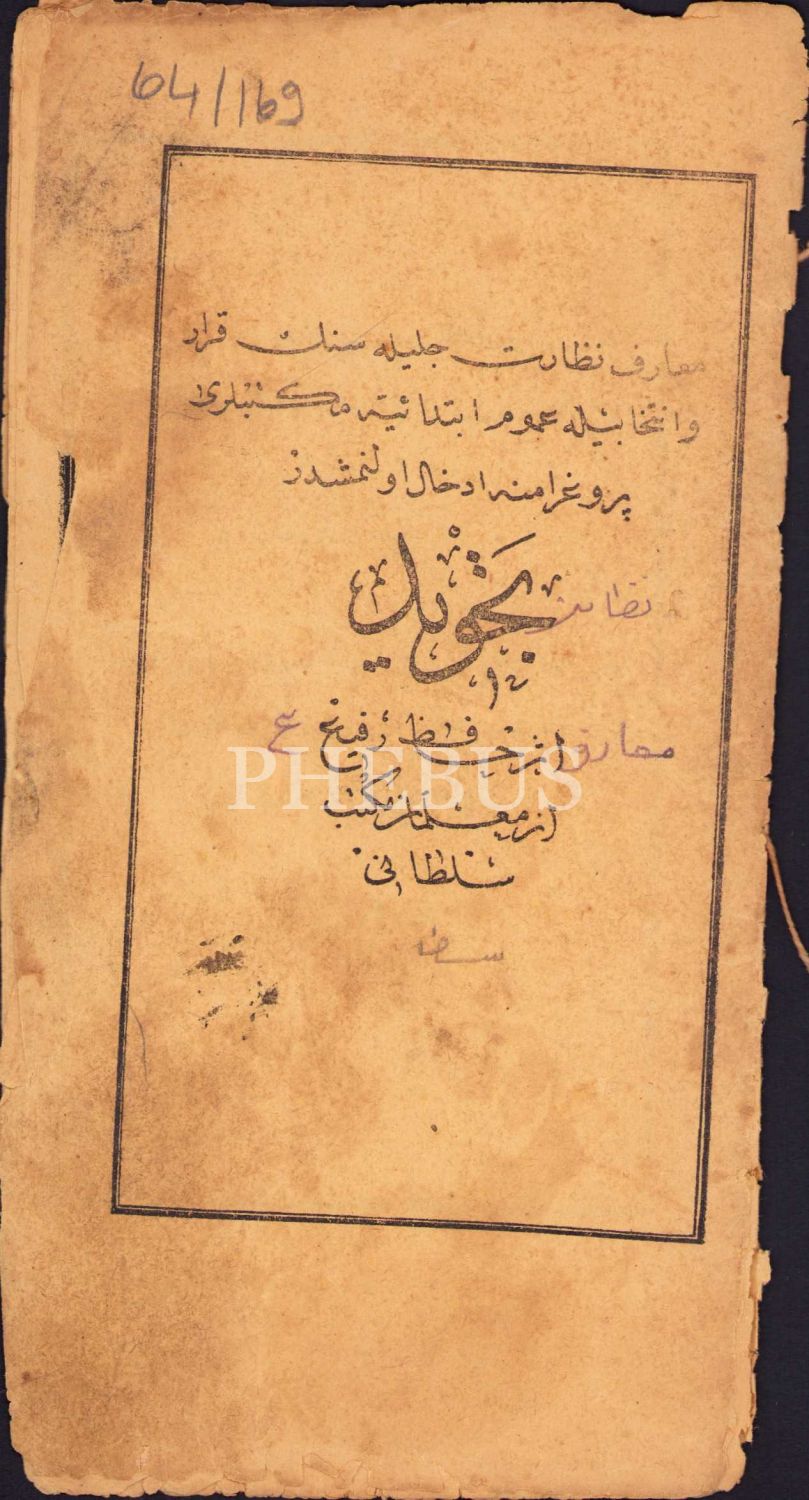 64/169
معارف نظارت جلیله سنك قرار
وانتخابیله عموم ابتدائیه مكتبلری
پروغرامنه ادخال اولنمشدر
تجوید
اثر حافظ رفیع
معارف
از معلمان مكتب
سلطانی
PHEBUS